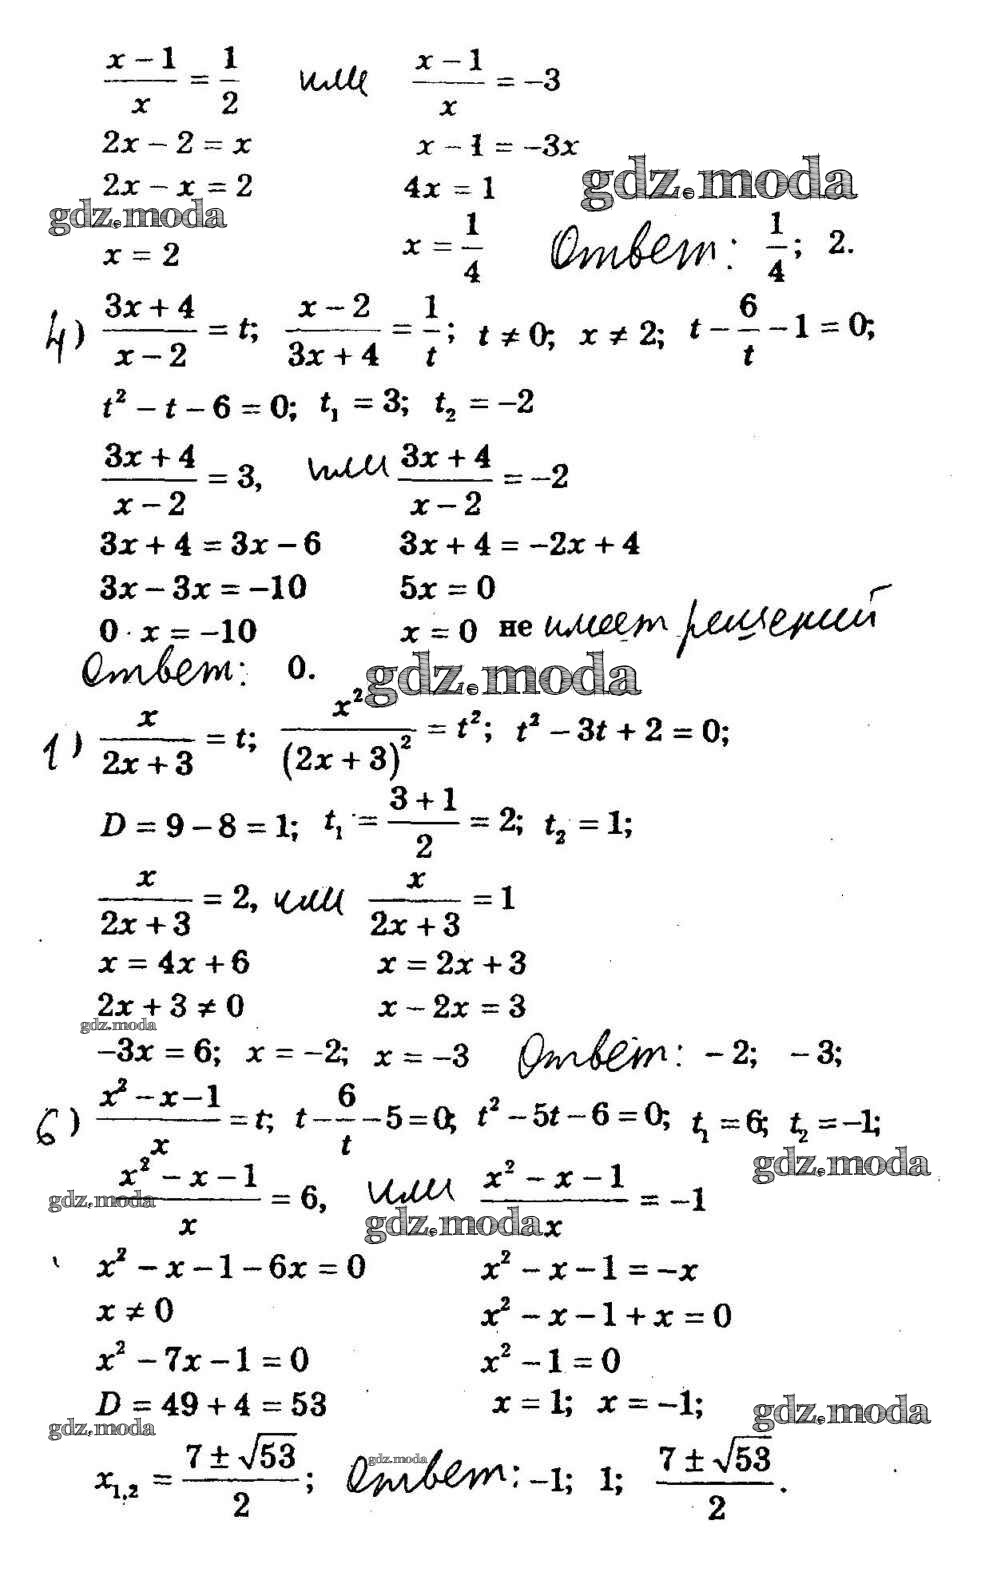 (x − 1)/x = 1/2 или (x − 1)/x = −3
2x − 2 = x x − 1 = −3x
2x − x = 2 4x = 1 gdz.moda
gdz.moda
x = 2 x = 1/4 Ответ: 1/4; 2.
4) (3x + 4)/(x − 2) = t; (x − 2)/(3x + 4) = 1/t; t ≠ 0; x ≠ 2; t − 6/t − 1 = 0;
t² − t − 6 = 0; t₁ = 3; t₂ = −2
(3x + 4)/(x − 2) = 3, или (3x + 4)/(x − 2) = −2
3x + 4 = 3x − 6 3x + 4 = −2x + 4
3x − 3x = −10 5x = 0
0 · x = −10 x = 0 не имеет решений
Ответ: 0. gdz.moda
1) x/(2x + 3) = t; x²/(2x + 3)² = t²; t² − 3t + 2 = 0;
D = 9 − 8 = 1; t₁ = (3 + 1)/2 = 2; t₂ = 1;
x/(2x + 3) = 2, или x/(2x + 3) = 1
x = 4x + 6 x = 2x + 3
2x + 3 ≠ 0 x − 2x = 3
gdz.moda
−3x = 6; x = −2; x = −3 Ответ: −2; −3;
6) (x² − x − 1)/x = t; t − 6/t − 5 = 0; t² − 5t − 6 = 0; t₁ = 6; t₂ = −1;
gdz.moda
(x² − x − 1)/x = 6, или (x² − x − 1)/x = −1
gdz.moda gdz.moda
x² − x − 1 − 6x = 0 x² − x − 1 = −x
x ≠ 0 x² − x − 1 + x = 0
x² − 7x − 1 = 0 x² − 1 = 0
D = 49 + 4 = 53 x = 1; x = −1; gdz.moda
gdz.moda gdz.moda
x₁,₂ = (7 ± √53)/2; Ответ: −1; 1; (7 ± √53)/2.